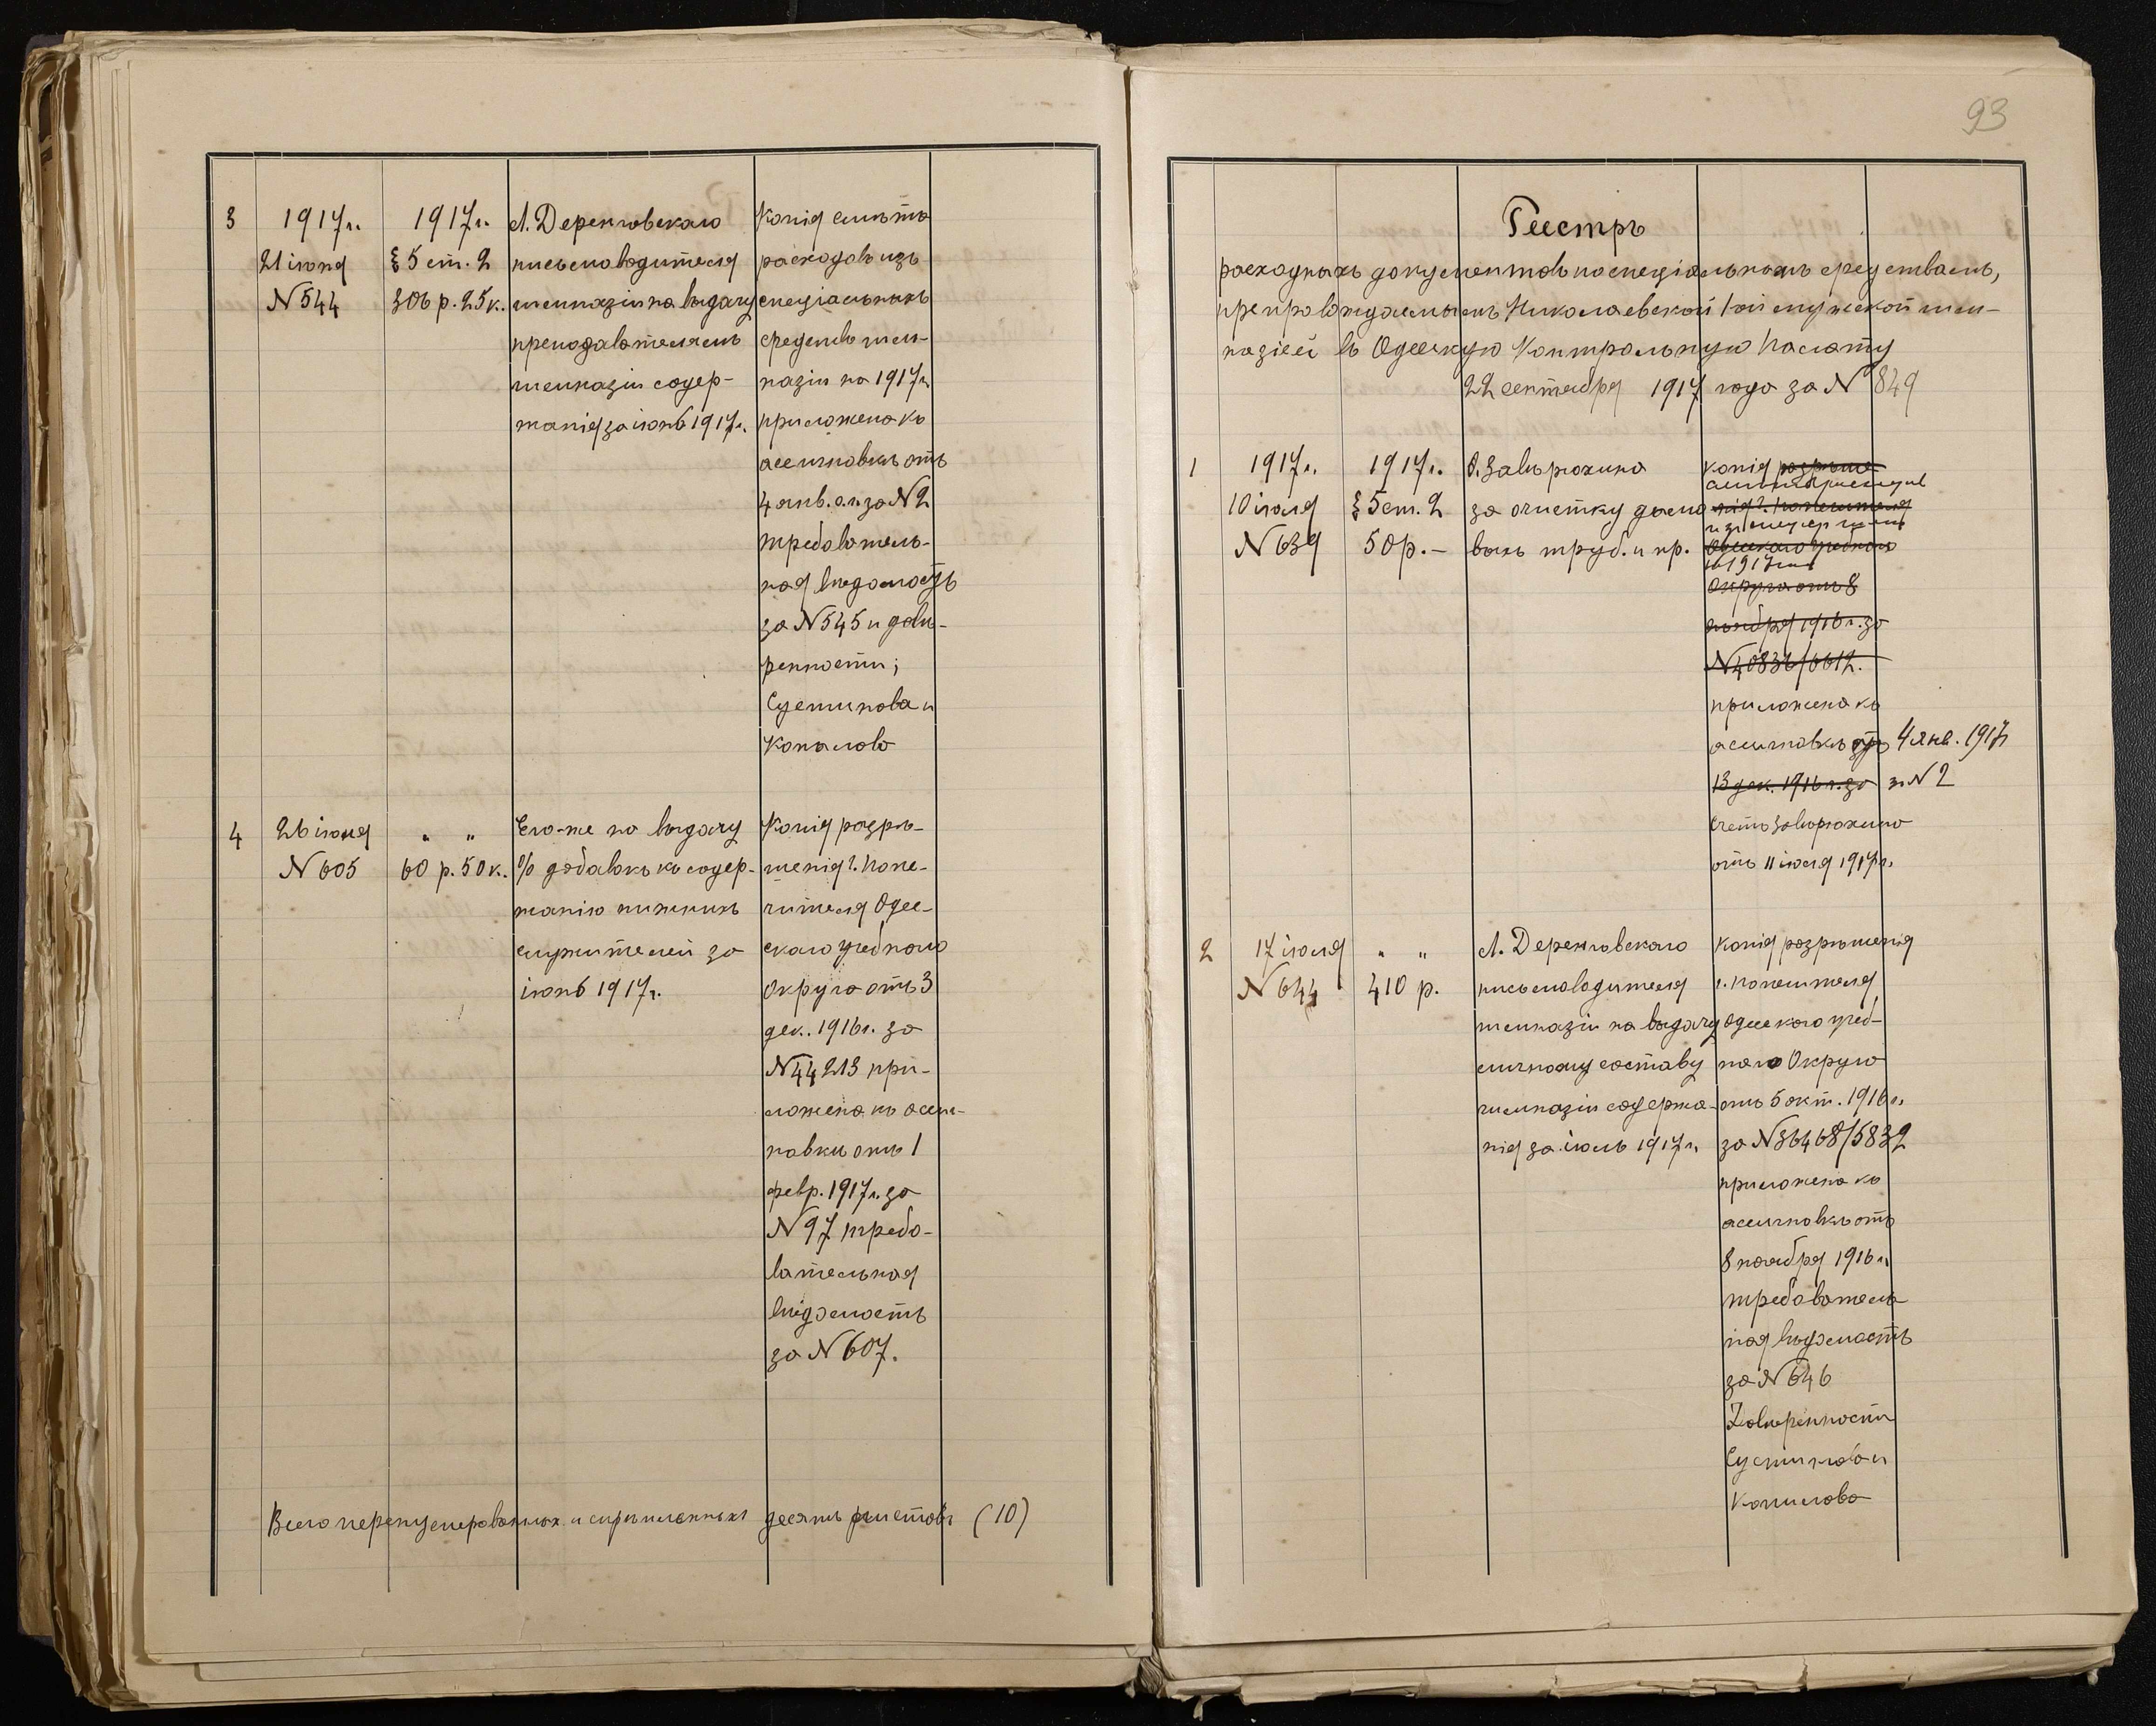 3
1917г.
21 іюня
N 544
1917г.
§ 5 ст. 2
306 р. 25 к.
Л. Деренговскаго
письмоводителя
гимназіи на выдачу
преподавателямъ
гимназіи содер-
жанія за іюнь 1917г.
Копія смѣты
расходовъ изъ
спеціальныхъ
средствъ гим-
назіи на 1917г.
приложена къ
ассигновкѣ отъ
4 янв. с.г. за N 2
требователь-
ная вѣдомость
за N 545 и довѣ-
ренности;
Сустинова и
Копылова
4
26 іюня
N 605
" "
60 р. 50 к.
Его-же на выдачу
% добавокъ къ содер-
жанію нижнихъ
служителей за
іюнь 1917г.
Копія разрѣ-
шенія г. Попе-
чителя Одес-
скаго учебнаго
Округа отъ 3
дек. 1916г. за
N 44213 при-
ложена къ ассиг-
новки отъ 1
февр. 1917г. за
N 97 требо-
вательная
вѣдомость
за N 607.
Всего перенумерованныхъ и скрѣпленныхъ десять листовъ (10)
93
Реестръ
расходныхъ документовъ по спеціальнымъ средствамъ,
препровождаемымъ Николаевской 1ой мужской гим-
назіей въ Одесскую Контрольную Палату
22 сентября 1917 года за N 849
1
1917г.
10 іюля
N 639
1917г.
§ 5 ст. 2
50 р. –
О. Завѣрюхина
за очистку дымо
выхъ труб. и пр.
копія разрѣше-
нія г. Попечителя
Одесскаго учебнаго
на 1917 г.
Округа отъ 8
ноября 1916г. за
N 40836/6612.
приложена къ
ассигновкѣ отъ 4 янв. 1917г
13 дек. 1916г. за з. N 2
Счетъ Завѣрюхина
отъ 11 іюля 1917г.
2
17 іюля
N 644
" "
410 р.
Л. Деренговскаго
письмоводителя
гимназіи на выдачу
личному составу
гимназіи содержа-
нія за іюль 1917г.
Копія разрѣшенія
г. Попечителя
Одесскаго учеб-
наго Округа
отъ 5 окт. 1916г.
за N 36468/5832
приложена къ
ассигновкѣ отъ
8 ноября 1916г.
требователь
ная вѣдомость
за N 646
Довѣренности
Сустинова и
Копылова